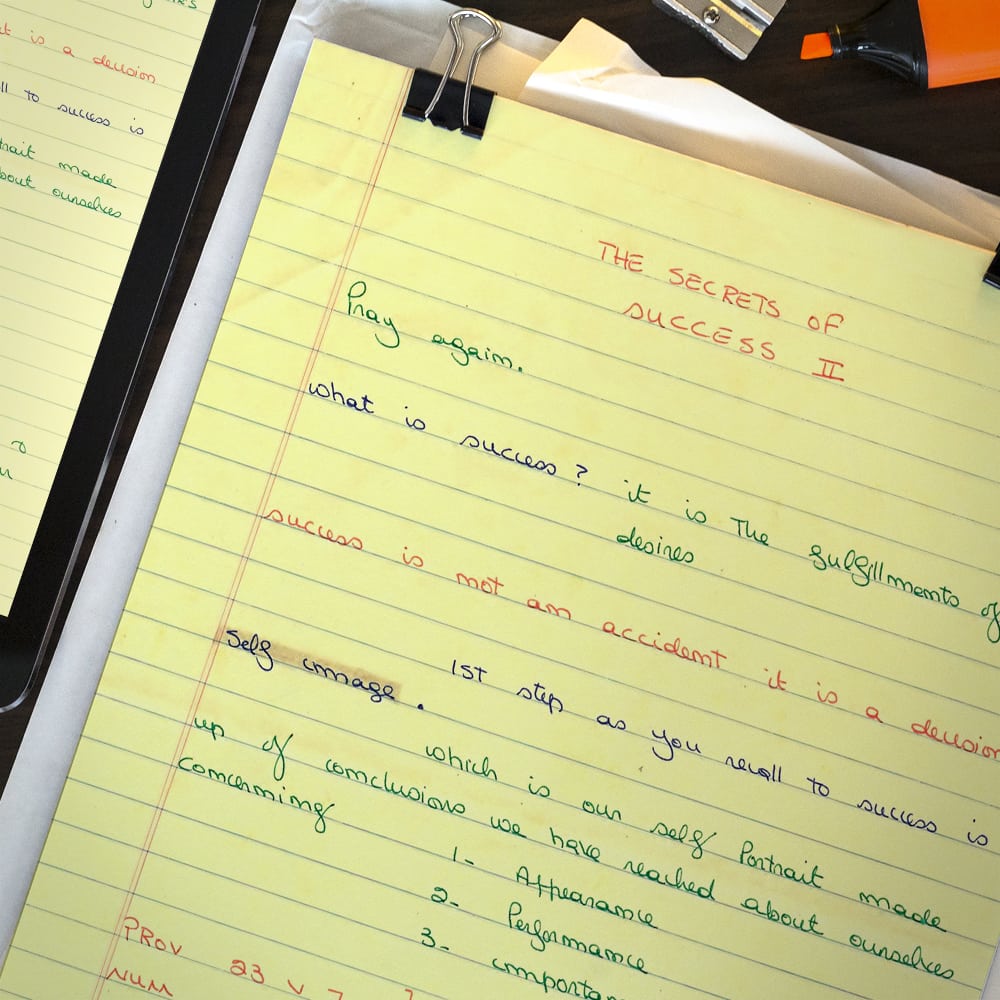 t is a decision
ll to success is
trait made
bout ourselves
THE SECRETS OF
SUCCESS II
Pray again.
What is success? it is The fulfillments of
desires
success is not an accident it is a decision
Self image. 1ST step as you recall to success is
which is our self Portrait made
up of conclusions we have reached about ourselves
concerning
1- Appearance
2- Performance
3- importa
PROV 23 v 7
NUM